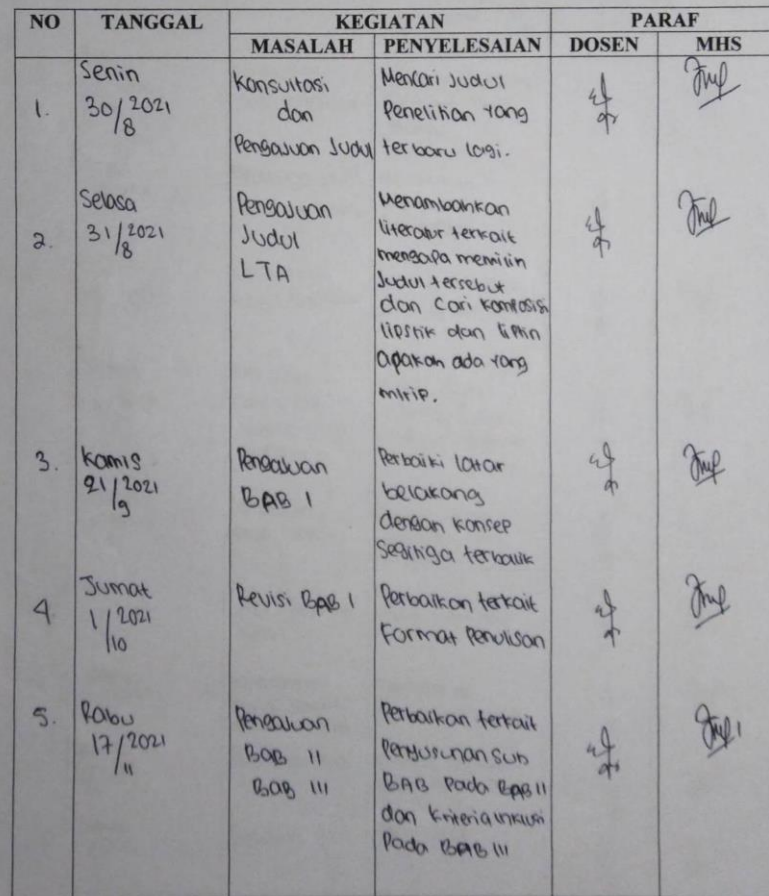 NO TANGGAL KEGIATAN PARAF
MASALAH PENYELESAIAN DOSEN MHS
1.
Senin
30/8 2021
Konsultasi
dan
Pengajuan Judul
Mencari Judul
Penelitian yang
terbaru lagi.
2.
Selasa
31/8 2021
Pengajuan
Judul
LTA
Menambahkan
literatur terkait
mengapa memilih
Judul tersebut
dan Cari komposisi
lipstik dan liptin
apakah ada yang
mirip.
3.
Kamis
21/9 2021
Pengajuan
BAB I
Perbaiki latar
belakang
dengan konsep
Segitiga terbalik
4
Jumat
1/10 2021
Revisi BAB I
Perbaikan terkait
Format Penulisan
5.
Rabu
17/11 2021
Pengajuan
BAB II
BAB III
Perbaikan terkait
Penyusunan Sub
BAB Pada BAB II
dan Kriteria inklusi
Pada BAB III